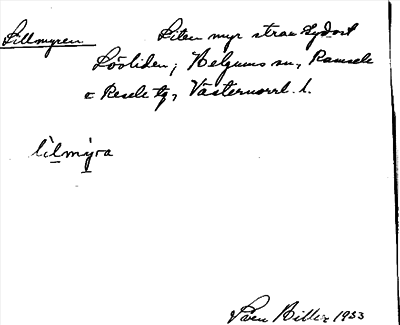 Lillmyren Liten myr strax sydost
Lövliden, Helgums sn, Ramsele
o Resele tg, Västernorrl. l.
lìlmýra
Sven Biller 1933